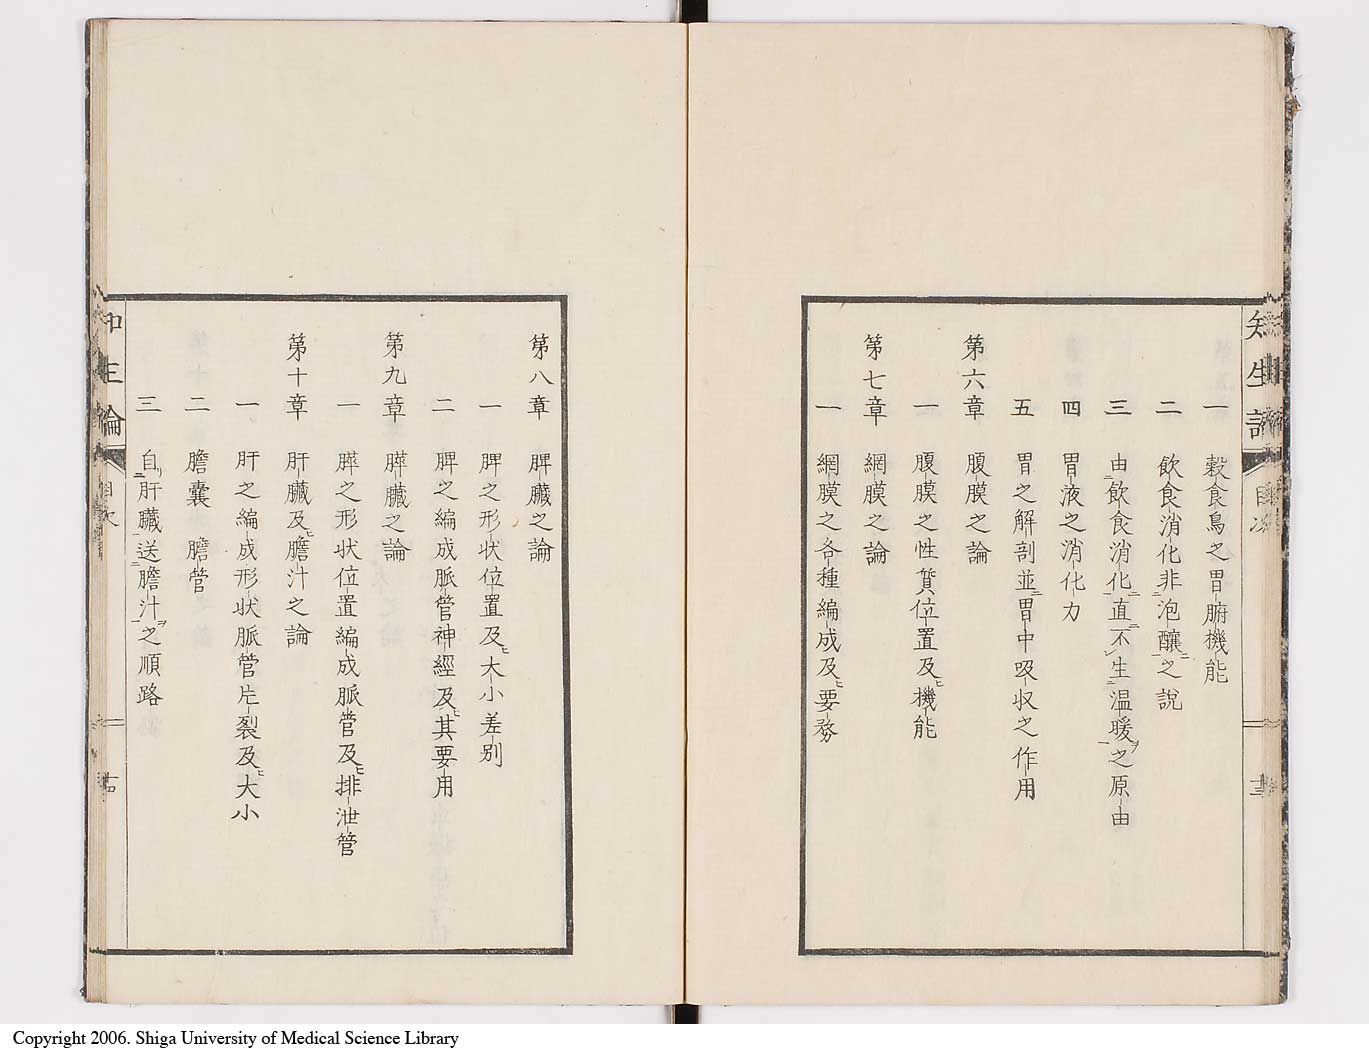 知生論 目次 十三
一 穀食鳥之胃腑機能
二 飲食消化非泡釀之説
三 由飲食消化直不生温暖之原由
四 胃液之消化力
五 胃之解剖並胃中吸収之作用
第六章 腹膜之論
一 腹膜之性質位置及機能
第七章 網膜之論
一 網膜之各種編成及要務
第八章 脾臓之論
一 脾之形状位置及大小差別
二 脾之編成脈管神經及其要用
第九章 膵臓之論
一 膵之形状位置編成脈管及排泄管
第十章 肝臓及膽汁之論
一 肝之編成形状脈管片裂及大小
二 膽囊膽管
三 自肝臓送膽汁之順路
知生論 目次 十四
Copyright 2006. Shiga University of Medical Science Library